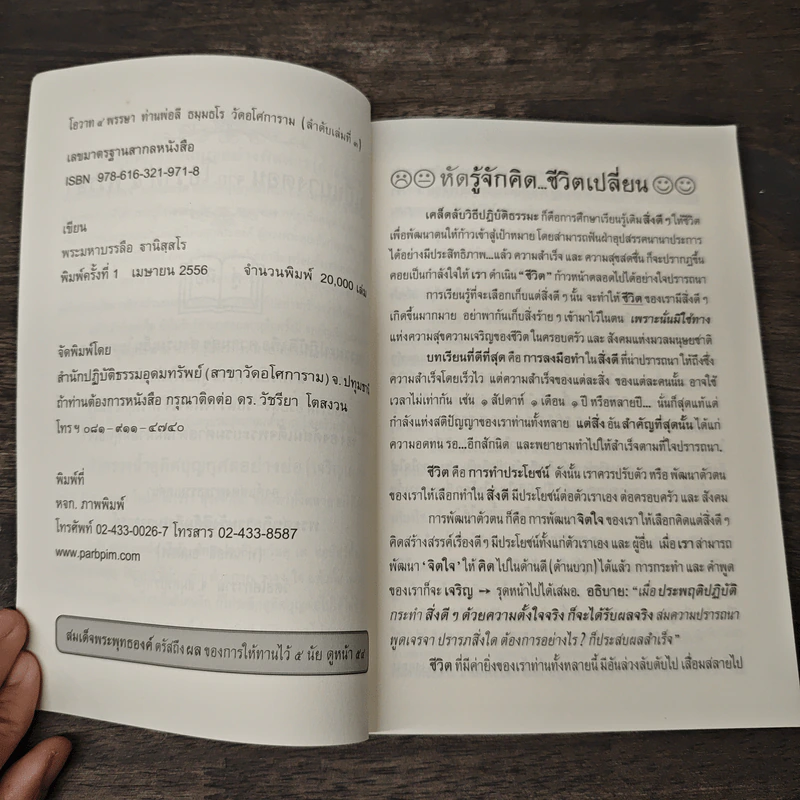 โอวาท ๔ พรรษา ท่านพ่อลี ธมฺมธโร วัดอโศการาม (ลำดับเล่มที่ ๑)
เลขมาตรฐานสากลหนังสือ
ISBN 978-616-321-971-8
เขียน
พระมหาบรรลือ ฐานิสฺสโร
พิมพ์ครั้งที่ 1 เมษายน 2556 จำนวนพิมพ์ 20,000 เล่ม
จัดพิมพ์โดย
สำนักปฏิบัติธรรมอุดมทรัพย์ (สาขาวัดอโศการาม) จ. ปทุมธานี
ถ้าท่านต้องการหนังสือ กรุณาติดต่อ ดร. วัชรียา โตสงวน
โทร ฯ ๐๘๑-๙๑๑-๔๗๔๐
พิมพ์ที่
หจก. ภาพพิมพ์
โทรศัพท์ 02-433-0026-7 โทรสาร 02-433-8587
www.parbpim.com
สมเด็จพระพุทธองค์ ตรัสถึง ผล ของการให้ทานไว้ ๕ นัย ดูหน้า
หัดรู้จักคิด...ชีวิตเปลี่ยน
เคล็ดลับวิธีปฏิบัติธรรมะ ก็คือการศึกษาเรียนรู้เติมสิ่งดี ๆ ให้ชีวิต
เพื่อพัฒนาตนให้ก้าวเข้าสู่เป้าหมาย โดยสามารถฟันฝ่าอุปสรรคนานาประการ
ได้อย่างมีประสิทธิภาพ...แล้ว ความสำเร็จ และ ความสุขสดชื่น ก็จะปรากฏขึ้น
คอยเป็นกำลังใจให้ เรา ดำเนิน "ชีวิต" ก้าวหน้าตลอดไปได้อย่างใจปรารถนา
การเรียนรู้ที่จะเลือกเก็บแต่สิ่งดี ๆ นั้น จะทำให้ ชีวิต ของเรามีสิ่งดี ๆ
เกิดขึ้นมากมาย อย่าพากันเก็บสิ่งร้าย ๆ เข้ามาไว้ในตน เพราะนั่นมิใช่ทาง
แห่งความสุขความเจริญของชีวิต ในครอบครัว และ สังคมแห่งมวลมนุษยชาติ
บทเรียนที่ดีที่สุด คือ การลงมือทำ ใน สิ่งดี ที่น่าปรารถนา ให้ถึงซึ่ง
ความสำเร็จโดยเร็วไว แต่ความสำเร็จของแต่ละสิ่ง ของแต่ละคนนั้น อาจใช้
เวลาไม่เท่ากัน เช่น ๑ สัปดาห์ ๑ เดือน ๑ ปี หรือหลายปี... นั่นก็สุดแท้แต่
กำลังแห่งสติปัญญาของเราท่านทั้งหลาย แต่สิ่ง อัน สำคัญที่สุดนั้น ได้แก่
ความอดทน รอ...อีกสักนิด และพยายามทำไปให้สำเร็จตามที่ใจปรารถนา.
ชีวิต คือ การทำประโยชน์ ดังนั้น เราควรปรับตัว หรือ พัฒนาตัวตน
ของเราให้เลือกทำใน สิ่งดี มีประโยชน์ต่อตัวเราเอง ต่อครอบครัว และ สังคม
การพัฒนาตัวตน ก็คือ การพัฒนา จิตใจ ของเราให้เลือกคิดแต่สิ่งดี ๆ
คิดสร้างสรรค์เรื่องดี ๆ มีประโยชน์ทั้งแก่ตัวเราเอง และ ผู้อื่น เมื่อ เรา สามารถ
พัฒนา 'จิตใจ' ให้ คิด ไปในด้านดี (ด้านบวก) ได้แล้ว การกระทำ และ คำพูด
ของเราก็จะ เจริญ → รุดหน้าไปได้เสมอ. อธิบาย: "เมื่อ ประพฤติปฏิบัติ
กระทำ สิ่งดี ๆ ด้วยความตั้งใจจริง ก็จะได้รับผลจริง สมความปรารถนา
พูดเจรจา ปรารภสิ่งใด ต้องการอย่างไร ? ก็ประสบผลสำเร็จ"
ชีวิต ที่มีค่ายิ่งของเราท่านทั้งหลายนี้ มีอันล่วงลับดับไป เสื่อมสลายไป